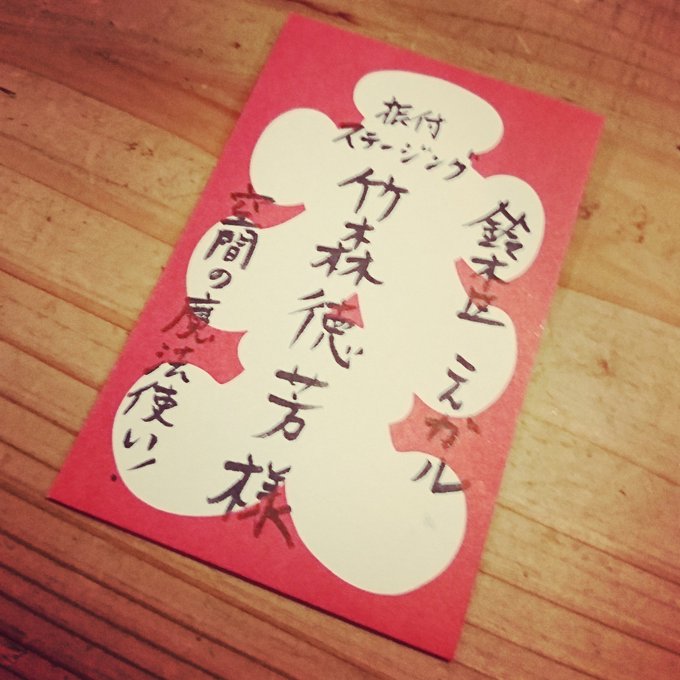 振付
ステージング
鈴木 ガル
竹森徳芳様
空間の魔法使い!